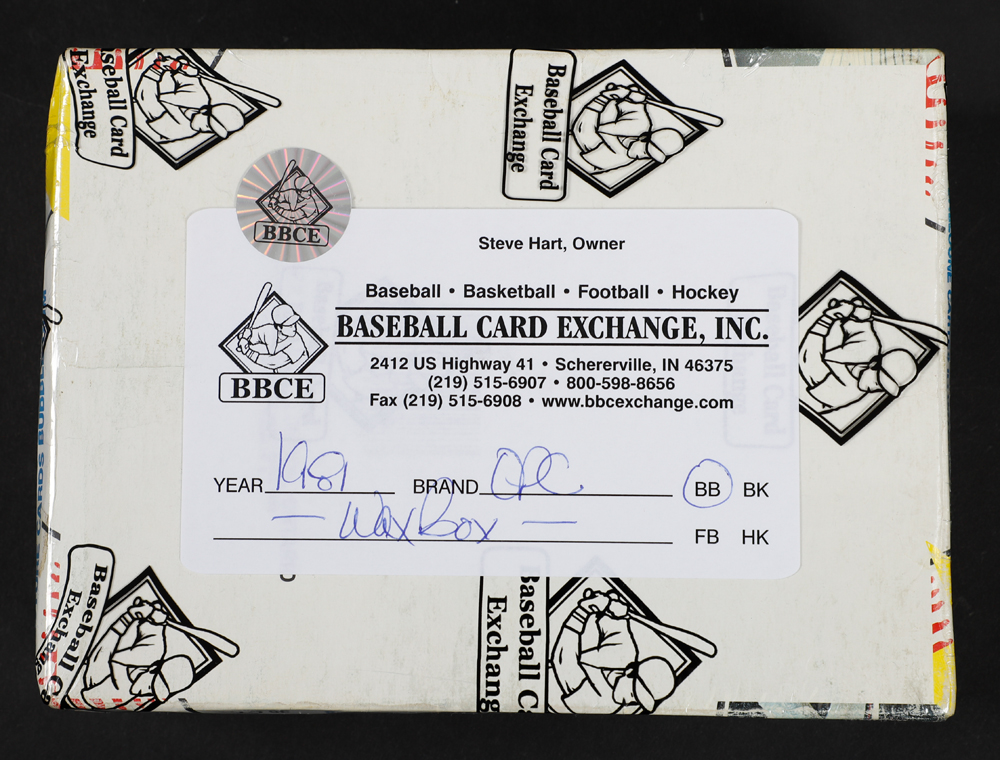 Baseball Card
Exchange
Baseball Card
Exchange
BBCE
Steve Hart, Owner
Baseball • Basketball • Football • Hockey
BASEBALL CARD EXCHANGE, INC.
BBCE
2412 US Highway 41 • Schererville, IN 46375
(219) 515-6907 • 800-598-8656
Fax (219) 515-6908 • www.bbcexchange.com
YEAR 1981 BRAND OPC BB BK
— Wax Box — FB HK
Baseball
Exchang
Baseball C
Exchang